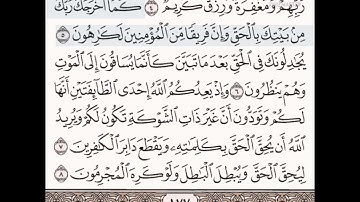 رَبِّهِمْ وَمَغْفِرَةٌ وَرِزْقٌ كَرِيمٌ ٤ كَمَآ أَخْرَجَكَ رَبُّكَ
مِنۢ بَيْتِكَ بِٱلْحَقِّ وَإِنَّ فَرِيقًا مِّنَ ٱلْمُؤْمِنِينَ لَكَٰرِهُونَ ٥
يُجَٰدِلُونَكَ فِى ٱلْحَقِّ بَعْدَ مَا تَبَيَّنَ كَأَنَّمَا يُسَاقُونَ إِلَى ٱلْمَوْتِ
وَهُمْ يَنظُرُونَ ٦ وَإِذْ يَعِدُكُمُ ٱللَّهُ إِحْدَى ٱلطَّآئِفَتَيْنِ أَنَّهَا
لَكُمْ وَتَوَدُّونَ أَنَّ غَيْرَ ذَاتِ ٱلشَّوْكَةِ تَكُونُ لَكُمْ وَيُرِيدُ
ٱللَّهُ أَن يُحِقَّ ٱلْحَقَّ بِكَلِمَٰتِهِۦ وَيَقْطَعَ دَابِرَ ٱلْكَٰفِرِينَ ٧
لِيُحِقَّ ٱلْحَقَّ وَيُبْطِلَ ٱلْبَٰطِلَ وَلَوْ كَرِهَ ٱلْمُجْرِمُونَ ٨
١٧٧